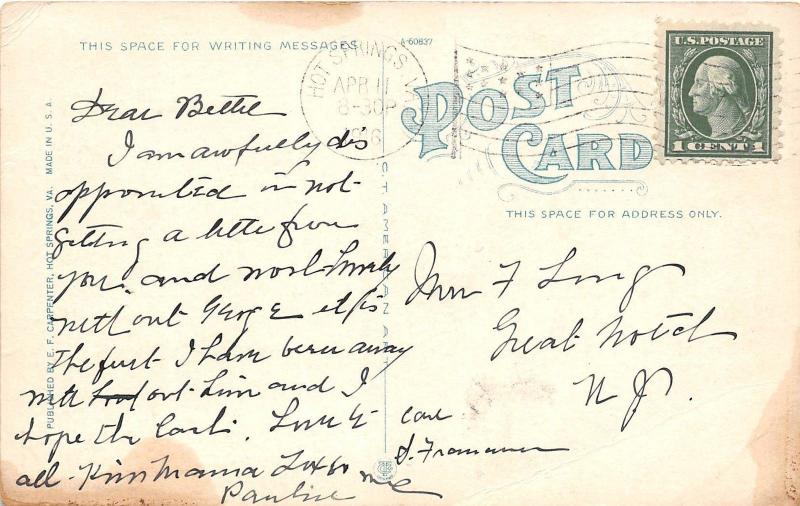 THIS SPACE FOR WRITING MESSAGES
A-60837
HOT SPRINGS, VA.
APR 11
8-30P
U.S. POSTAGE
1 CENT 1
POST
CARD
THIS SPACE FOR ADDRESS ONLY.
PUBLISHED BY E. F. CARPENTER, HOT SPRINGS, VA. MADE IN U. S. A.
C. T. AMERICAN ART
Dear Bettie
I am awfully dis
appointed in not
getting a letter from
you. and most lonely
without George it is
the first I have been away
without him and I
hope the last. Love to
all. Kiss Mama for
me
Pauline
F Long
Great Notch
N J.
care